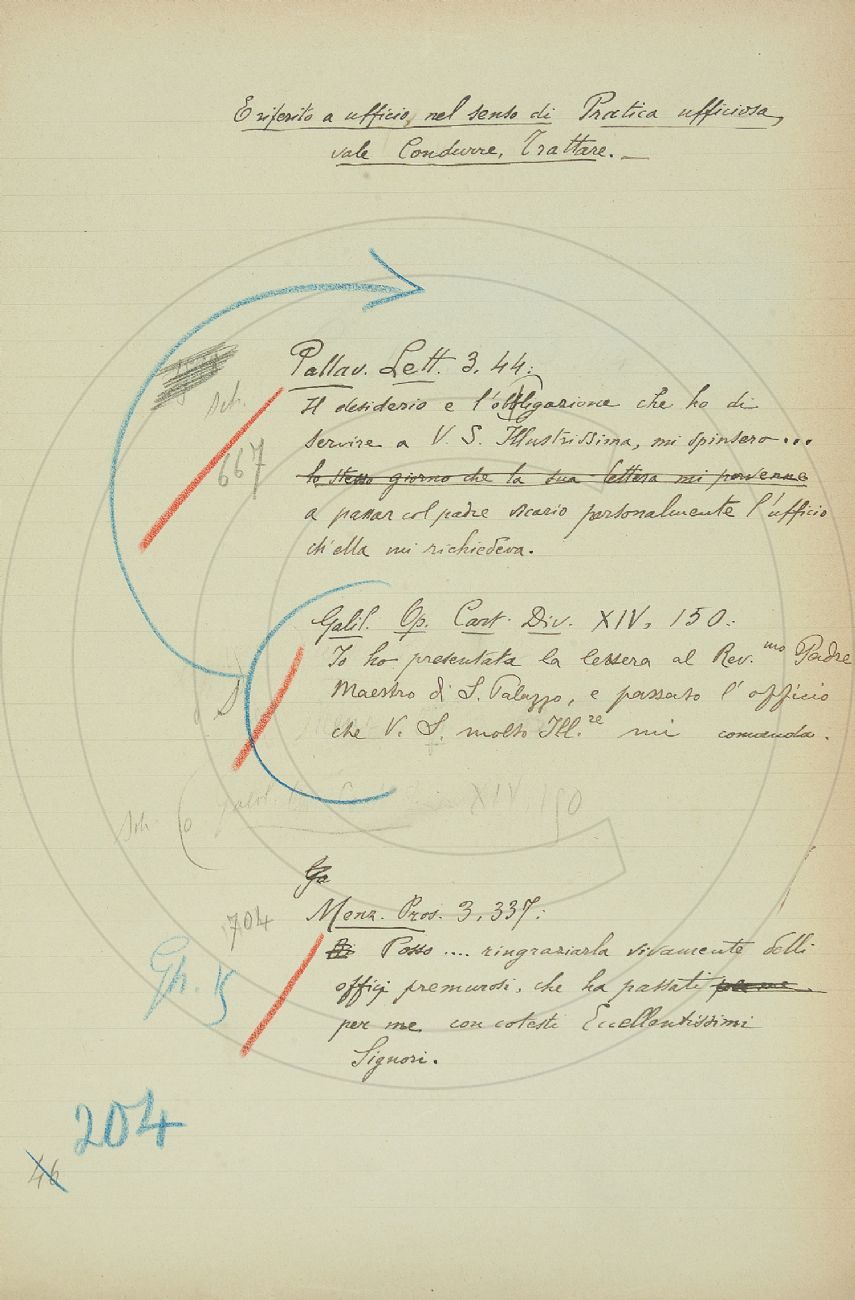 E riferito a ufficio, nel senso di Pratica ufficiosa,
vale Condurre, Trattare. —
Pallav. Lett. 3, 44:
Sch.
Il desiderio e l'obbligazione che ho di
667
servire a V. S. Illustrissima, mi spinsero...
lo stesso giorno che la sua lettera mi pervenne
a passar col padre vicario personalmente l'ufficio
ch'ella mi richiedeva.
Galil. Op. Cart. Div. XIV, 150:
Io ho presentata la lettera al Rev.mo Padre
Maestro di S. Palazzo, e passato l'officio
che V. S. molto Ill.re mi comanda.
Sch. Galil. XIV, 150
Ga
704
Menz. Pros. 3, 337:
Posso .... ringraziarla vivamente delli
offizj premurosi, che ha passati per me
Gh. 15
per me con cotesti Eccellentissimi
Signori.
204
46